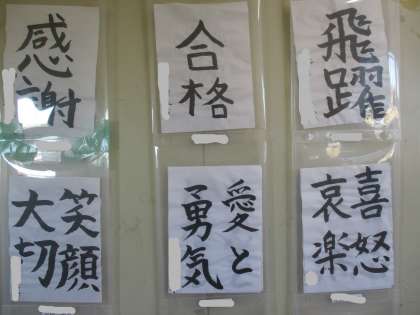 感謝
合格
飛躍
笑顔
大切
愛と
勇気
喜怒
哀楽